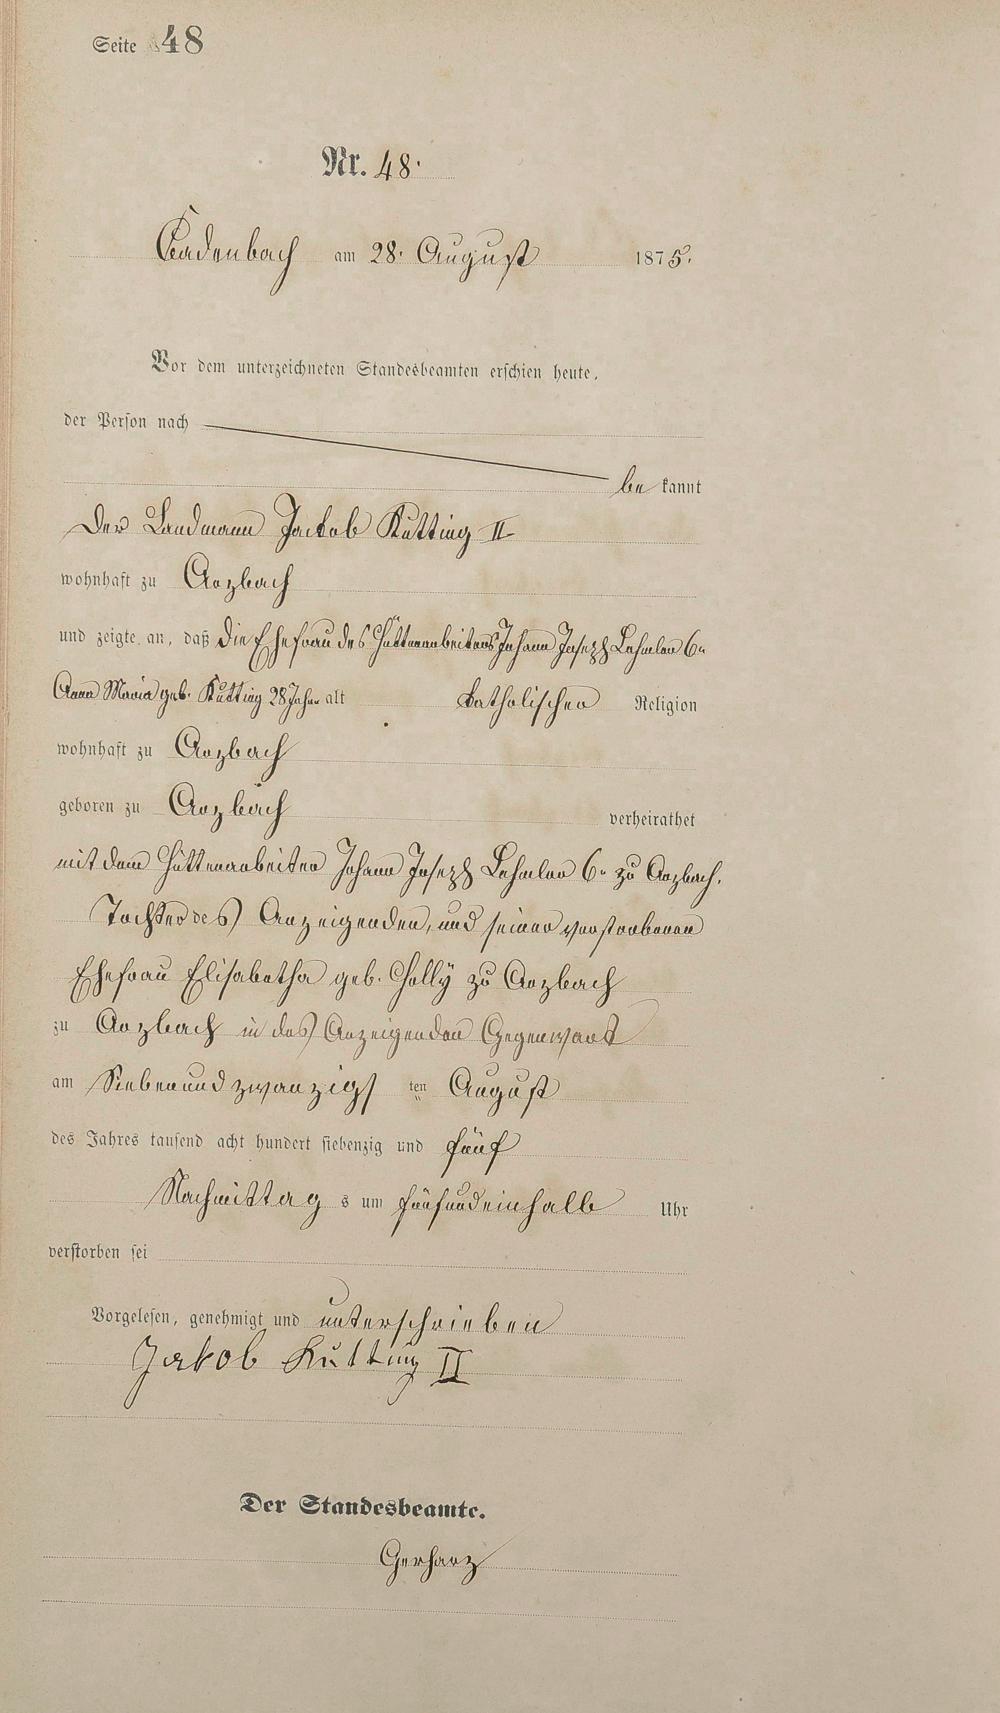 Seite 48
Nr. 48.
Cadenbach am 28. August 1875.
Vor dem unterzeichneten Standesbeamten erschien heute,
der Person nach
be kannt
Der Landmann Jackob Kutting II
wohnhaft zu Arzbach
und zeigte an, daß die Ehefrau des Hüttenarbeiters Johann Joseph Lehmler 6r
Anna Maria geb. Kutting 28 Jahre alt katholischer Religion
wohnhaft zu Arzbach
geboren zu Arzbach verheirathet
mit dem Hüttenarbeiter Johann Joseph Lehmler 6r zu Arzbach,
Tochter des Anzeigenden, und seiner verstorbenen
Ehefrau Elisabetha geb. Cholly zu Arzbach
zu Arzbach in des Anzeigenden Gegenwart
am Siebenundzwanzigs ten August
des Jahres tausend acht hundert siebenzig und fünf
Nachmittag s um fünfundeinhalb Uhr
verstorben sei
Vorgelesen, genehmigt und unterschrieben
Jakob Kutting II
Der Standesbeamte.
Gerharz